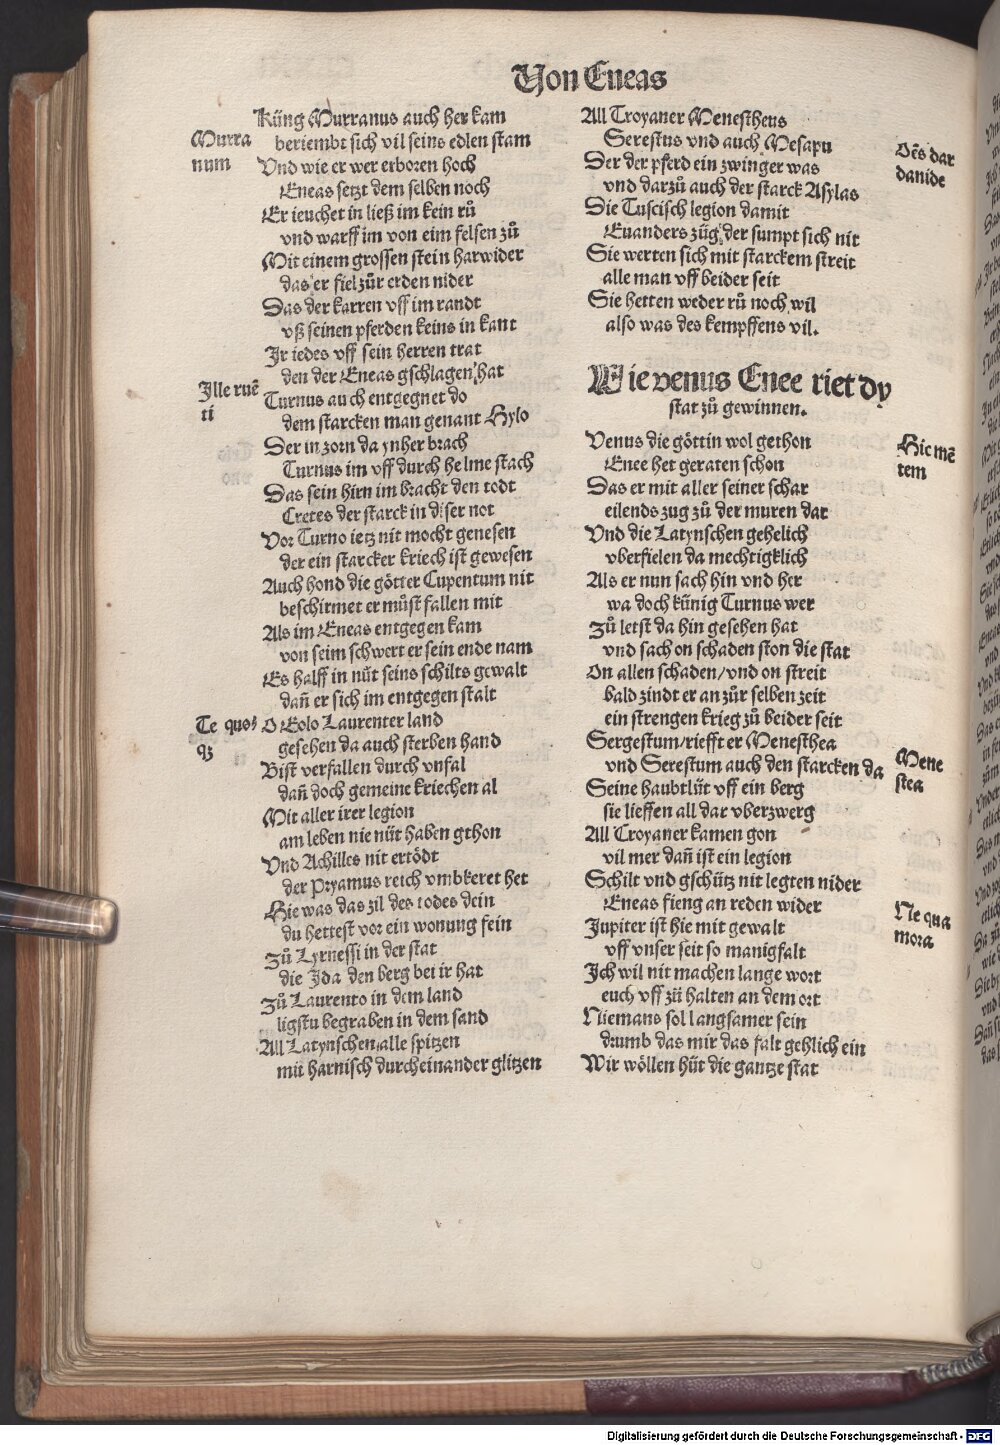 Von Eneas
Küng Murranus auch her kam
Murra
num
beriembt sich vil seins edlen stam
Vnd wie er wer erboren hoch
Eneas setzt dem selben noch
Er ieuchet in ließ im kein rů
vnd warff im von eim felsen zů
Mit einem grossen stein harwider
das er fiel zůr erden nider
Das der karren vff im randt
vß seinen pferden keins in kant
Ir iedes vff sein herren trat
den der Eneas gschlagen hat
Ille ruẽ
ti
Turnus auch entgegnet do
dem starcken man genant Hylo
Der in zorn da ynher brach
Turnus im vff durch helme stach
Das sein hirn im bracht den todt
Cretes der starck in diser not
Vor Turno ietz nit mocht genesen
der ein starcker kriech ist gewesen
Auch hond die götter Cupentum nit
beschirmet er můst fallen mit
Als im Eneas entgegen kam
von seim schwert er sein ende nam
Es halff in nüt seins schilts gewalt
dañ er sich im entgegen stalt
Te quoq3
O Eolo Laurenter land
gesehen da auch sterben hand
Bist verfallen durch vnfal
dañ doch gemeine kriechen al
Mit aller irer legion
am leben nie nüt haben gthon
Vnd Achilles nit ertödt
der Pryamus reich vmbkeret het
Hie was das zil des todes dein
du hettest vor ein wonung fein
Zů Lyrnessi in der stat
die Ida den berg bei ir hat
Zů Laurento in dem land
ligstu begraben in dem sand
All Latynschen alle spitzen
mit harnisch durcheinander glitzen
All Troyaner Menestheus
Serestus vnd auch Mesapu
Oẽs dar
danide
Der der pferd ein zwinger was
vnd darzů auch der starck Asylas
Die Tuscisch legion damit
Euanders züg der sumpt sich nit
Sie werten sich mit starckem streit
alle man vff beider seit
Sie hetten weder rů noch wil
also was des kempffens vil.
Wie venus Enee riet dy
stat zů gewinnen.
Venus die göttin wol gethon
Hic mẽ
tem
Enee het geraten schon
Das er mit aller seiner schar
eilends zug zů der muren dar
Vnd die Latynschen gehelich
vberfielen da mechtigklich
Als er nun sach hin vnd her
wa doch künig Turnus wer
Zů letst da hin gesehen hat
vnd sach on schaden ston die stat
On allen schaden/vnd on streit
bald zindt er an zůr selben zeit
ein strengen krieg zů beider seit
Sergestum/riefft er Menesthea
Mene
stea
vnd Serestum auch den starcken da
Seine haubtlüt vff ein berg
sie lieffen all dar vberzwerg
All Troyaner kamen gon
vil mer dañ ist ein legion
Schilt vnd gschütz nit legten nider
Eneas fieng an reden wider
Ne qua
mora
Jupiter ist hie mit gewalt
vff vnser seit so manigfalt
Ich wil nit machen lange wort
euch vff zů halten an dem ort
Niemans sol langsamer sein
drumb das mir das falt gehlich ein
Wir wöllen hüt die gantze stat
Digitalisierung gefördert durch die Deutsche Forschungsgemeinschaft - DFG